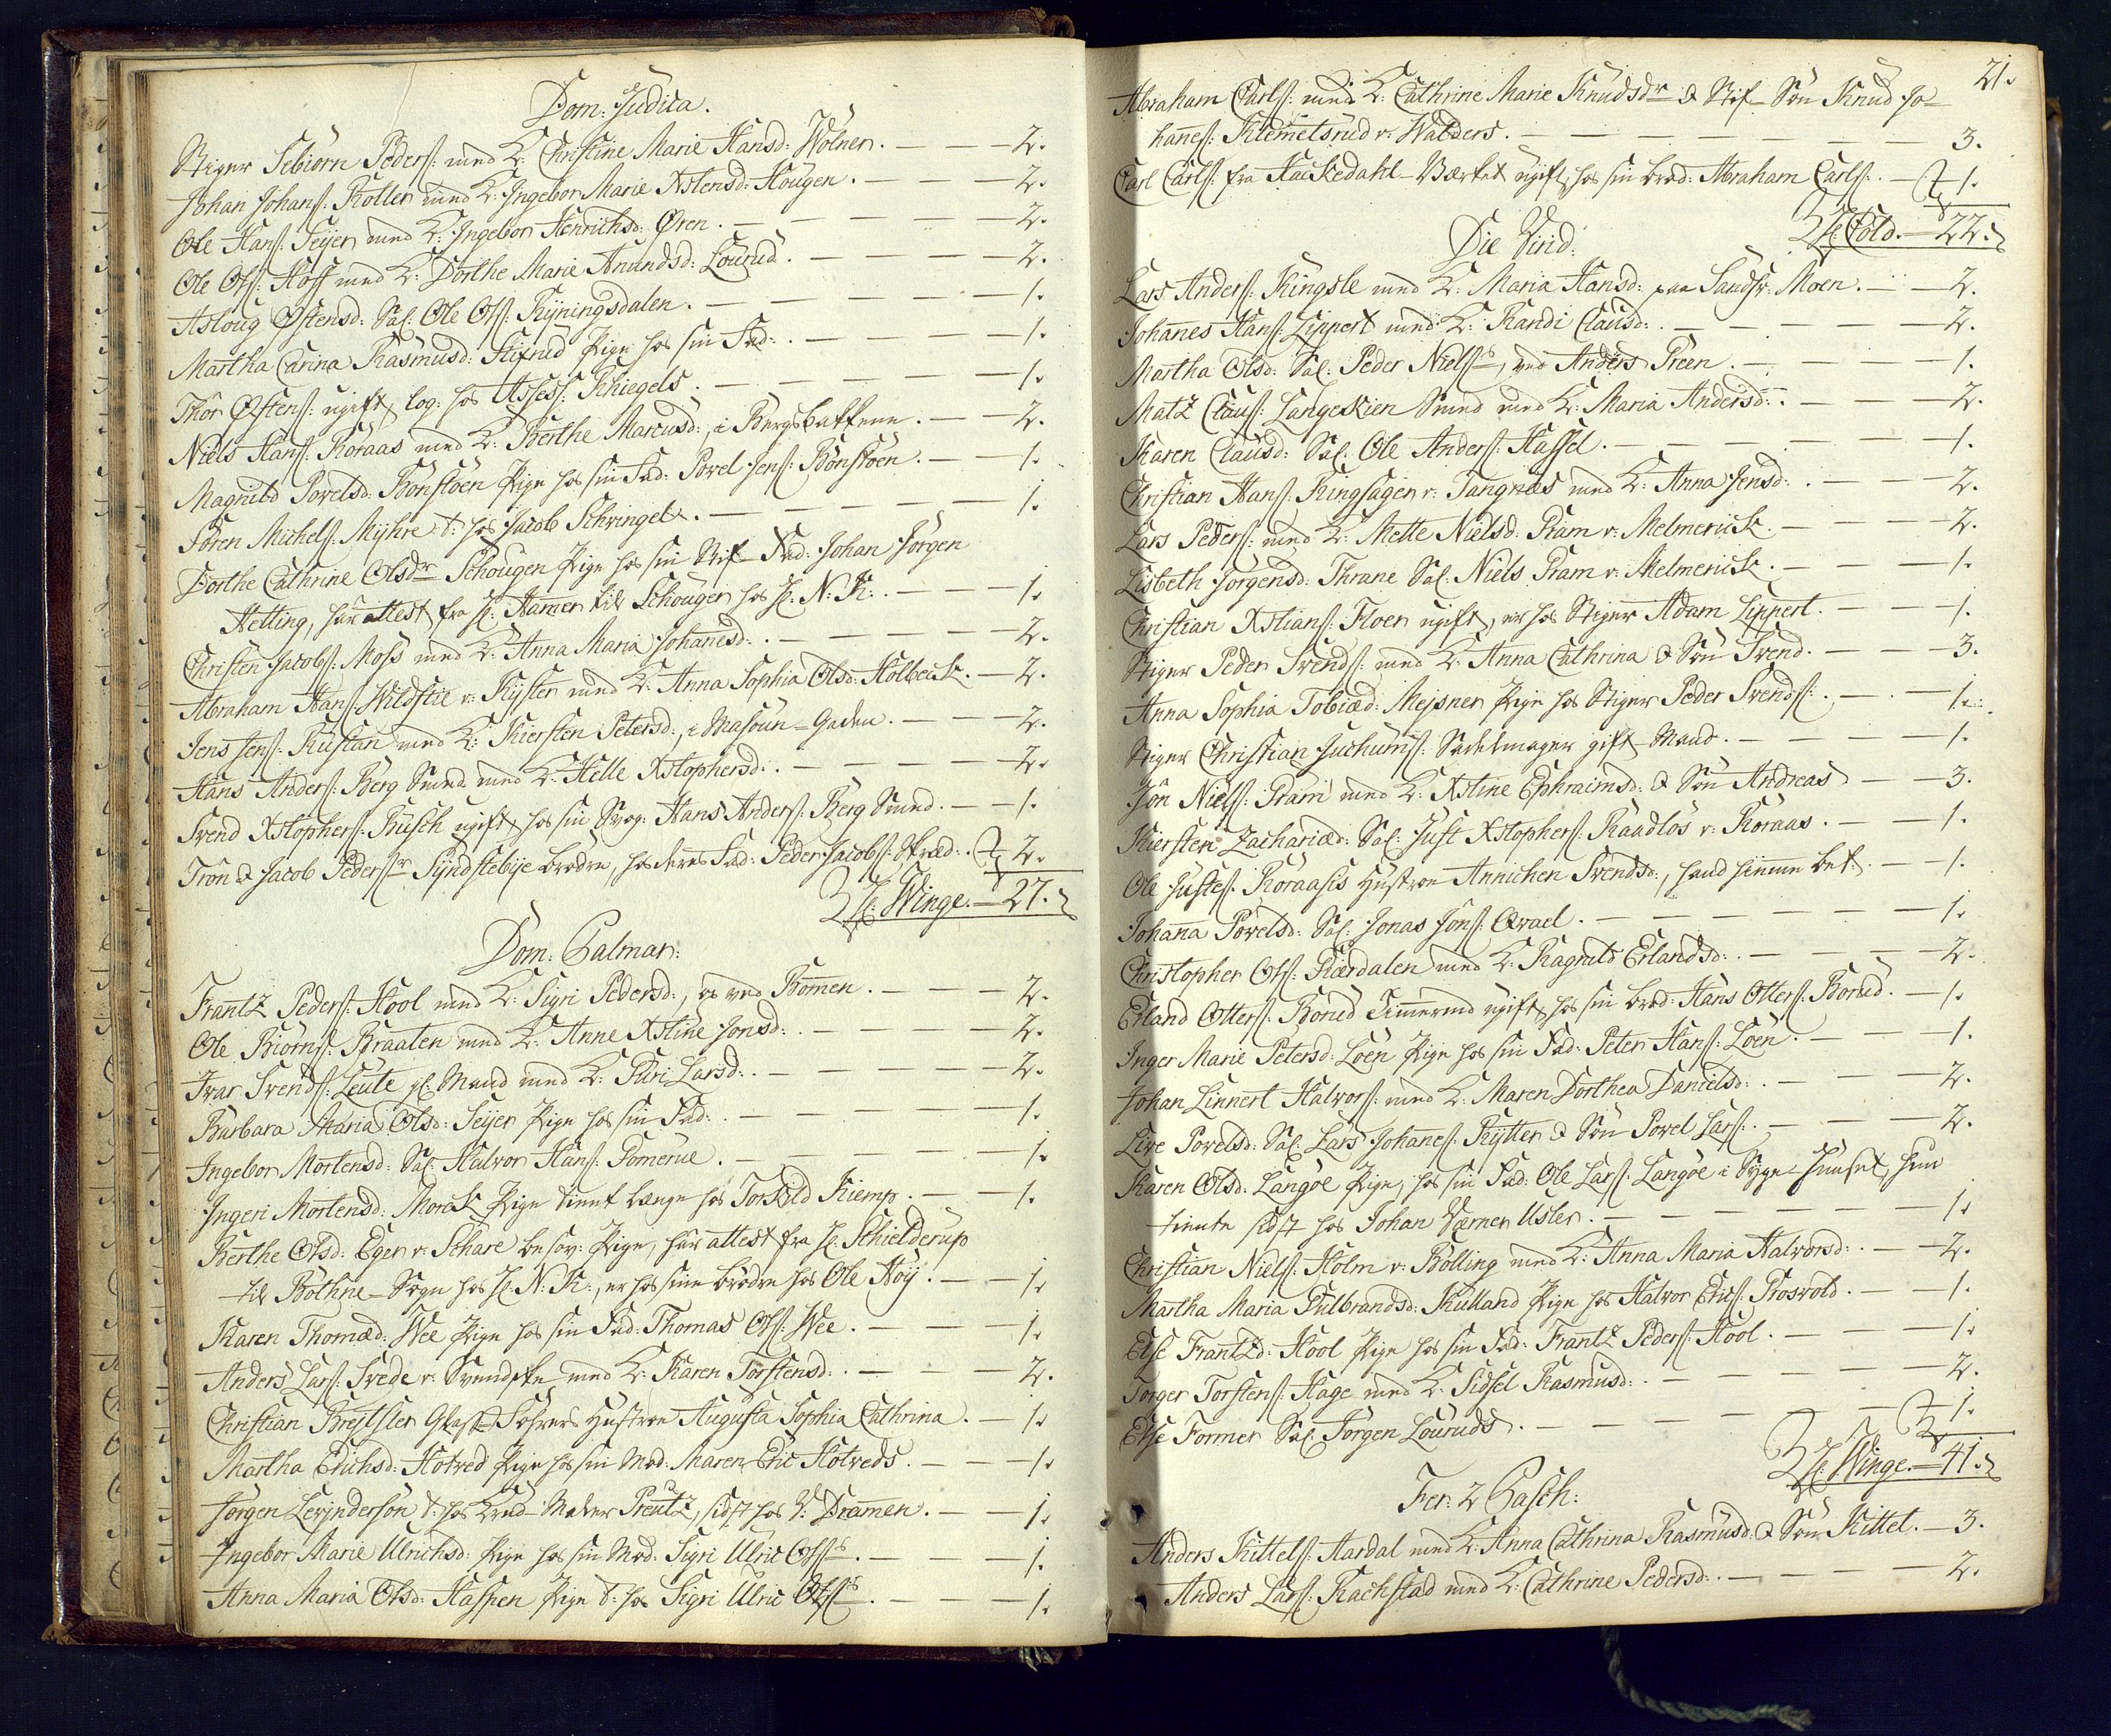 Dom: Judica.
Stiger Sebiörn Peders: med K: Christine Marie Hansd: Wölner. — — 2.
Johan Johans: Kolter med K: Ingebor Marie Xstensd: Hougen. — — — 2.
Ole Hans: Seyer med K: Ingebor Henrichsd: Øren. — — — — — 2.
Ole Ols: Hoff med K: Dorthe Marie Anundsd: Lourud. — — — — 2.
Asloug Østensd: Sal: Ole Ols: Ryningsdalen. — — — — — 1.
Martha Carina Rasmusd: Stixrud Pige hos sin Fad: — — — — 1.
Thor Østens: ugift, log: hos Assess: Schiegels. — — — — 1.
Niels Hans: Roraas med K: Berthe Marcusd:, i Bergsbakkene. — 2.
Magnild Povelsd: Bonsloen Pige hos sin Fad: Povel Jens: Bonsloen. — 1.
Sören Michels: Myhre t: hos Jacob Schringels. — — — — 1.
Dorthe Cathrine Olsdr Schougen Pige hos sin Stif-Fad: Johan Jörgen
Hetting, har attest fra H: Hamer til Schougen hos H: N: K:. — — 1.
Christen Jacobs: Moss med K: Anna Maria Johanesd:. — — — — 2.
Abraham Hans: Wildstie v: Kyster med K: Anna Sophia Olsd: Holbeck. — 2.
Jens Jens: Rustan med K: Kiersten Petersd:, i Masoun-Gaden. — — 2.
Hans Anders: Berg Smed med K: Helle Xstophersd:. — — — — 2.
Svend Xstophers: Busch ugift, hos sin Svog: Hans Anders: Berg Smed. — 1.
Tron & Jacob Pedersr Syndstebye brödre, hos deres Fad: Peder Jacobs: Skræd:. 2.
H: Winge. — 27.
Dom: Palmar:
Frantz Peders: Hool med K: Sigri Pedersd:, og ved Bomen. — — — 2.
Ole Biörns: Braaten med K: Anne Xstine Jonsd:. — — — — 2.
Ivar Svends: Leute gl: Mand med K: Guri Larsd:. — — — — 2.
Barbara Maria Olsd: Seyer Pige hos sin Fad:. — — — — 1.
Ingebor Mortensd: Sal: Halvor Hans: Pomerue. — — — — 1.
Ingeri Mortensd: Morck Pige tient længe hos Torkild Kiemp. — — 1.
Berthe Olsd: Eger v: Schare besov: Pige, har attest fra H: Schielderup
til Bothne-Sogn hos H: N: K:, er hos sine brödre hos Ole Høy. — — 1.
Karen Thomæd: Wee Pige hos sin Fad: Thomas Ols: Wee. — — — 1.
Anders Lars: Svede v: Svendske med K: Karen Torstensd:. — — — 2.
Christian Breytsler Glass-Sohrers Hustroe Augusta Sophia Cathrina. — 1.
Martha Erichsd: Hotved Pige hos sin Mod: Maren Eric Hotveds. — — 1.
Jörgen Seyndersön t: hos Krud-Maker Preutz, sidst hos V: Dramen. — 1.
Ingebor Marie Ulrichsd: Pige hos sin Mod: Sigri Ulric Ols. — — — 1.
Anna Maria Olsd: Hassen Pige t: hos Sigri Ulric Ols. — — — 1.
21.
Abraham Carls: med K: Cathrine Marie Knudsdr & Stif-Sön Knud Jo-
hanes: Klemetsrud v: Walders. — — — — — — 3.
Carl Carls: fra Hackedahl-Værket ugift, hos sin brod: Abraham Carls:. — 1.
H: Told. — 22.
Die Virid:
Lars Anders: Kingsle med K: Maria Hansd: paa Sandsv: Moen. — — 2.
Johannes Hans: Lippert med K: Randi Clausd:. — — — — 2.
Martha Olsd: Sal: Peder Niels, ved Anders Preen. — — — — 1.
Matz Claus: Langeskien Smed med K: Maria Andersd:. — — — 2.
Karen Clausd: Sal: Ole Anders: Hassel. — — — — — — 1.
Christian Hans: Kingsagen v: Tangnæs med K: Anna Jensd:. — — 2.
Lars Peders: med K: Mette Nielsd: Pram v: Melmerick. — — — 2.
Lisbeth Jorgensd: Thrane Sal: Niels Pram v: Melmerick. — — — 1.
Christian Xstians: Floer ugift, er hos Stiger Adam Lippert. — — 1.
Stiger Peder Svends: med K: Anna Cathrina & Sön Svend. — — 3.
Anna Sophia Tobiæd: Mejsner Pige hos Stiger Peder Svends:. — — 1.
Stiger Christian Juchums: Sadelmager gift Mand. — — — 1.
Jön Niels: Pram med K: Xstine Ephraimsd: & Sön Andreas — — 3.
Kiersten Zachariæd: Sal: Just Xstophers: Raadlös v: Röraas. — — 1.
Ole Justes: Roraases Hustroe Annichen Svendsd:, hand hiemme bet:. — 1.
Johana Povelsd: Sal: Jonas Jöns: Qvael. — — — — — 1.
Christopher Ols: Riærdalen med K: Ragnild Erlandsd:. — — — 2.
Erland Otters: Borud Timermd ugift, hos sin brod: Hans Otters: Borud. — 1.
Inger Marie Petersd: Loen Pige hos sin Fad: Peter Hans: Loen. — — 1.
Johan Linnert Halvors: med K: Maren Dorthea Danielsd:. — — 2.
Live Povelsd: Sal: Lars Johanes: Rytter & Sön Povel Lars:. — — 2.
Karen Olsd: Langöe Pige, hos sin Fad: Ole Lars: Langöe i Syge-Huuset, hun
tiente sidst hos Johan Værner Usler. — — — — — — 1.
Christian Niels: Holm v: Bölling med K: Anna Maria Halvorsd:. — — 2.
Martha Maria Gulbrandsd: Rulland Pige hos Halvor Erics: Prosvold. — — 1.
Else Frantzd: Hool Pige hos sin Fad: Frantz Peders: Hool. — — — 1.
Torger Torstens: Hage med K: Sidsel Rasmusd:. — — — — 2.
Else Former Sal: Jörgen Louruds. — — — — — 1.
H: Winge. — 41.
Fer: 2 Pasch:
Anders Kittels: Aardal med K: Anna Cathrina Rasmusd: & Sön Kittel. — 3.
Anders Lars: Rachstad med K: Cathrine Pedersd:. — — — — 2.